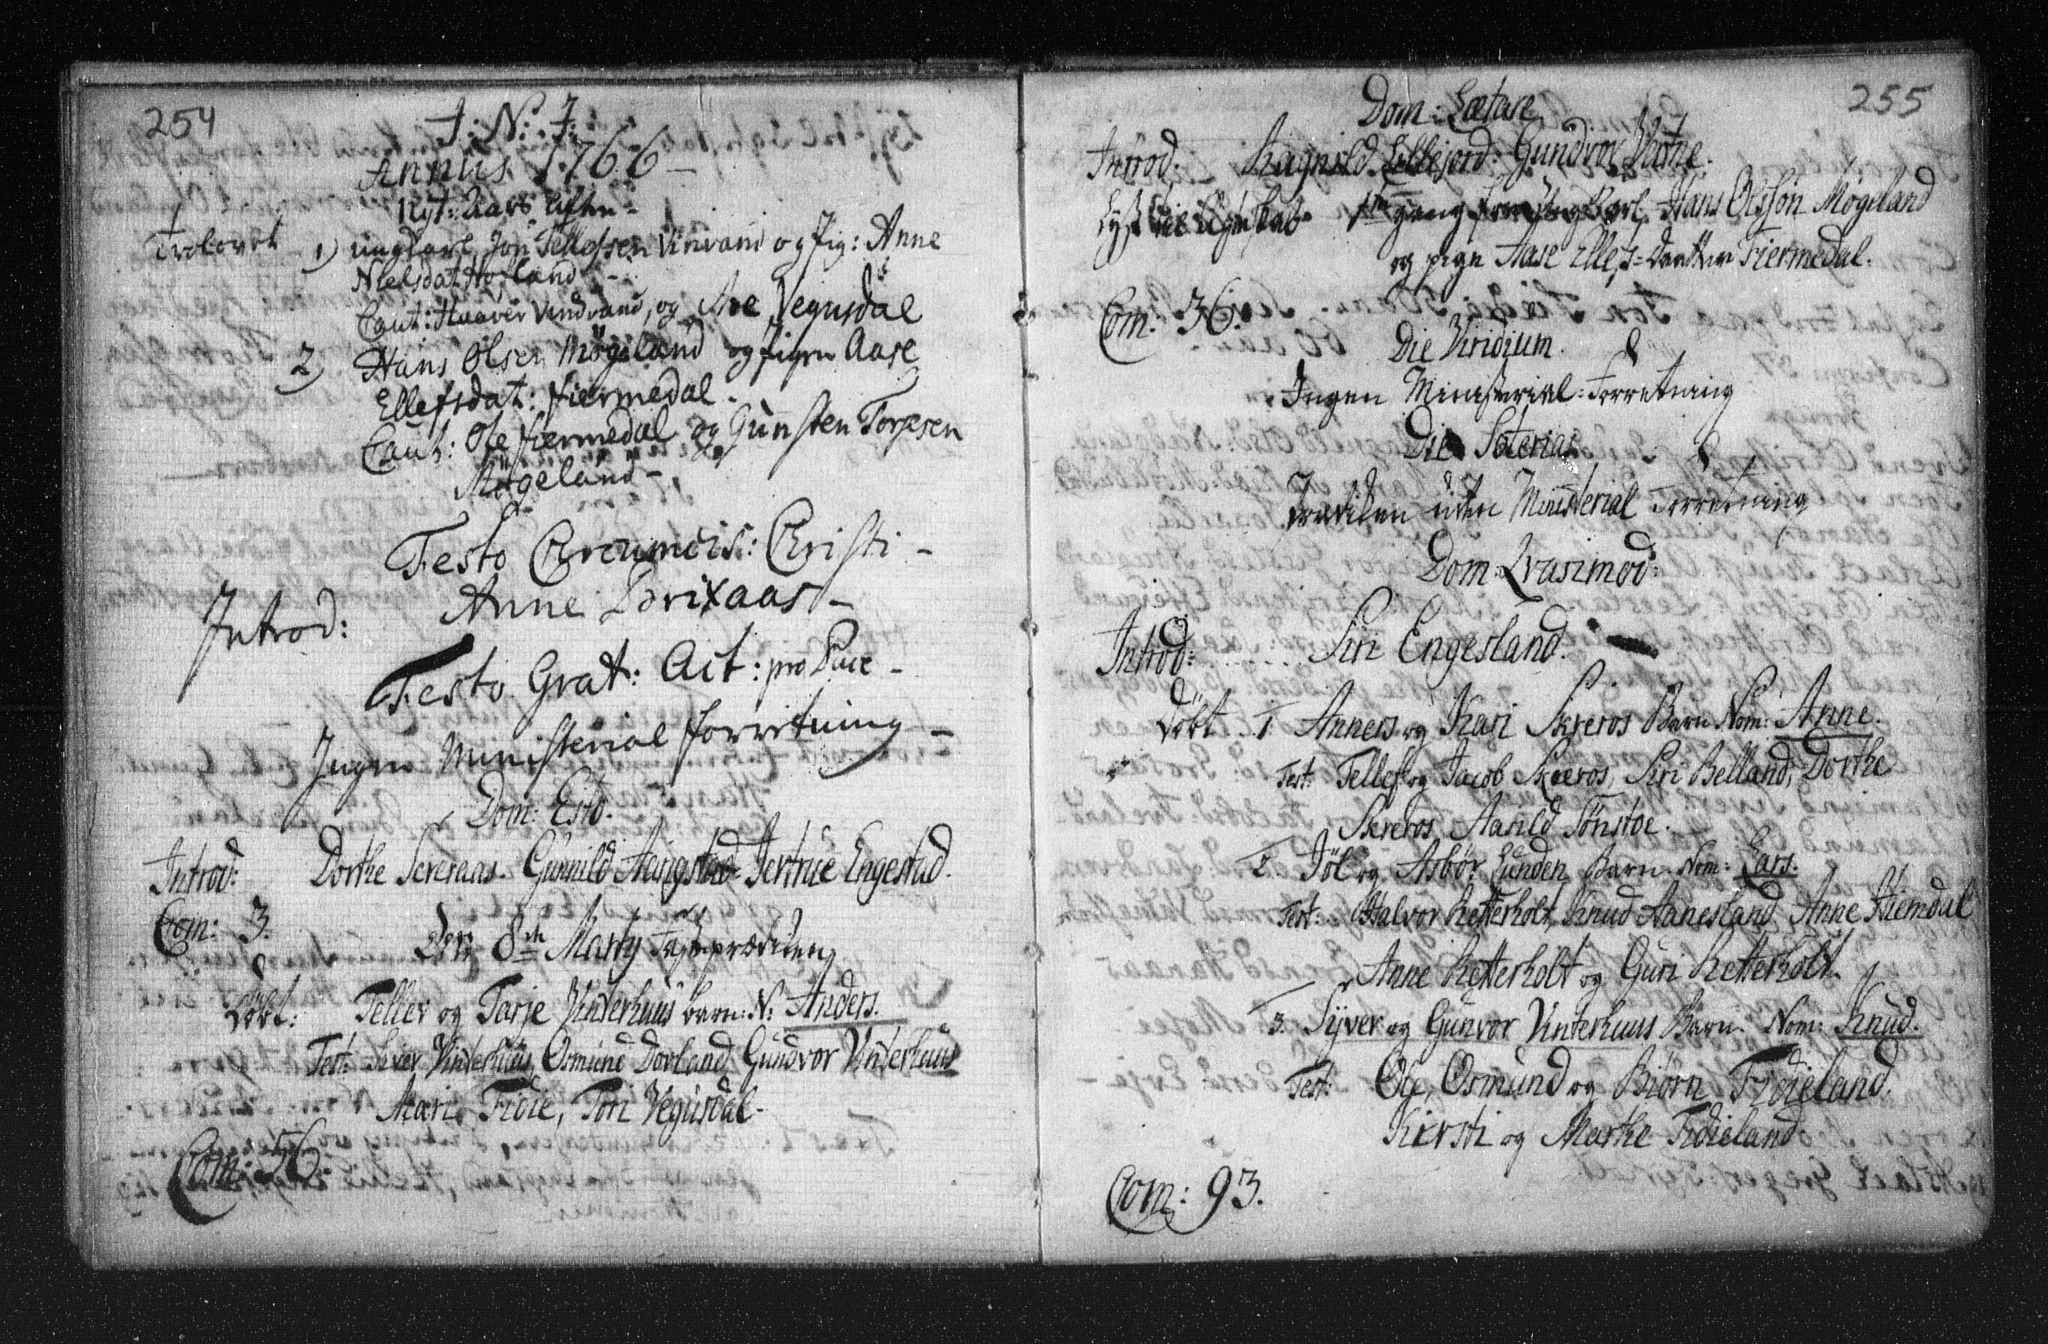 254
J: N: J:
Annus 1766 –
Nyt: Aars Aften –
Trolovet 1) ungkarl Jon Tellefssen Vinvand og Pig: Anne
Nielsdat: Hogland –
Caut: Haaver Vindvand, og Are Vegusdal
2) Hans Olsen Møgeland og Pigen Aase
Ellefsdat: Fiermedal –
Caut: Ole Fiermedal og Gunsten Torjesen
Møgeland –
Festo Circumcis: Christi –
Introd: Anne Birixaas –
Festo Grat: Act: pro Pace –
Ingen Ministerial forretning –
Dom: Esto.
Introd: Dorthe Severaas. Gunnild Aavigstad Jertrue Engestud.
Com: 3.
Den 8de Marty Fasteprædiken
Døbt: Tellev og Tarje Vinterhuus barn: N: Anders.
Test: Siver Vinterhuus, Osmund Dovland, Gundvor Vinterhuus
Mari Fidie, Tori Vegusdal.
Com: 56.
255
Dom: Lætare
Introd. Ragnild Lillejord. Gundvor Vatne.
Lyst til Ægteskab 1te gang for Ungkarl Hans Olsøn Møgeland
og pigen Aase Ellefs-Daatter Fiermedal.
Com: 36.
Die Viridium.
Ingen Ministerial-Forretning
Die Soterias
Prædiken uden Ministerial Forretning
Dom: Qvasimod:
Introd: Siri Engesland.
Døbt 1 Anners og Kari Skreros Barn Nom: Anne.
Test: Tellef og Jacob Skreros, Siri Belland, Dorthe
Skreros, Aasild Tønstøe.
2 Jøl og Asbør Lunden Barn Nom: Lars.
Test: Halvor Retterholt, Knud Aanesland, Anne Hiemdal
Anne Retterholt og Guri Retterholt.
3. Syver og Gunvor Vinterhuus Barn Nom: Knud.
Test: Ole, Osmund og Biørn Fidieland,
Kirsti og Marthe Fidieland
Com: 93.